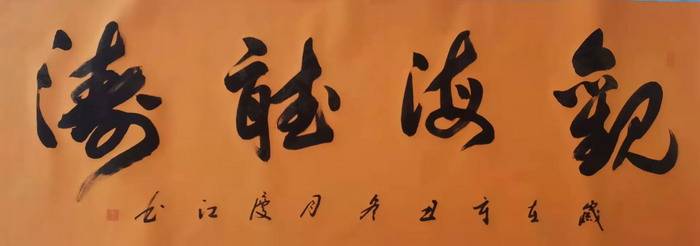 觀海聽濤
歲在辛丑冬月慶江书